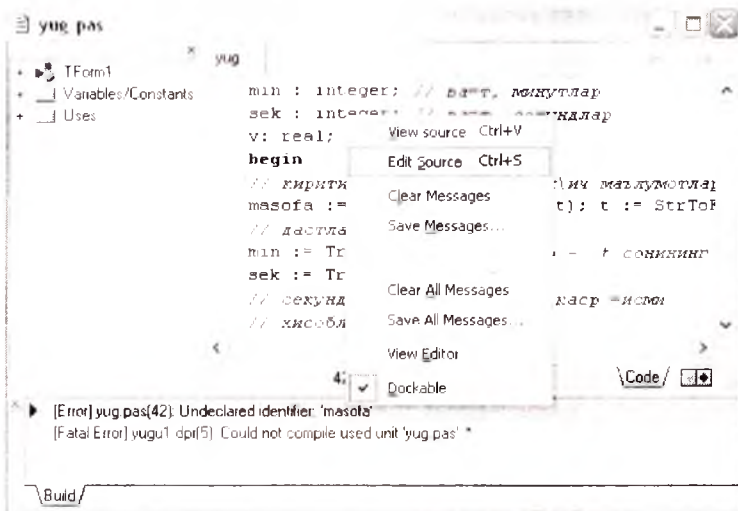 yug pas
yug
TForm1
Variables/Constants
Uses
min : integer; // минутлар
sek : integer;
v: real;
begin
// маълумотлар
masofa := t); t :=
//
min := Tr t сонининг
sek := Tr
// каср =исми
//
View source Ctrl+V
Edit Source Ctrl+S
Clear Messages
Save Messages...
Clear All Messages
Save All Messages...
View Editor
Dockable
Code
[Error] yug.pas(42): Undeclared identifier: 'masofa'
[Fatal Error] yugu1 dpr(5) Could not compile used unit 'yug.pas'
Build